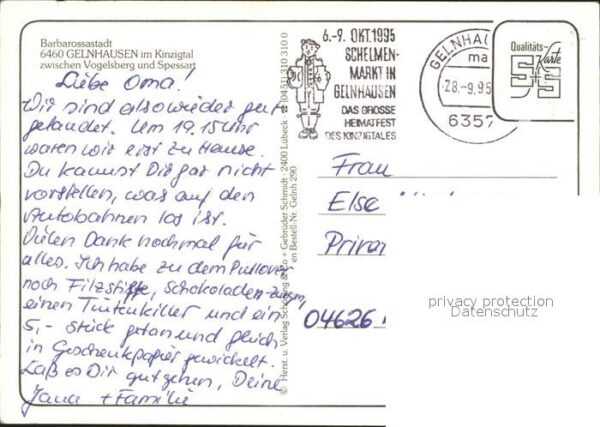 Barbarossastadt
6460 GELNHAUSEN im Kinzigtal
zwischen Vogelsberg und Spessart
Liebe Oma!
Wir sind also wieder gut
gelandet. Um 19.15 Uhr
waren wir erst zu Hause.
Du kannst Dir gar nicht
vorstellen, was auf den
Autobahnen los ist.
Vielen Dank nochmal für
alles. Ich habe zu dem Pullover
noch Filzstifte, Schokoladen-
einen Tintenkiller und ein
5,- Stück getan und gleich
in Geschenkpapier gewickelt.
Laß es Dir gut gehen, Deine
Jana + Familie
© Herst. u. Verlag Schöning & Co + Gebrüder Schmidt · 2400 Lübeck · ☎ (0451) 310 310 0
en Bestell-Nr. Gelnh 290
6.-9. OKT. 1995
SCHELMEN-
MARKT IN
GELNHAUSEN
DAS GROSSE
HEIMATFEST
DES KINZIGTALES
GELNHAU
ma
28.-9.95
6357
Qualitäts-
Karte
Frau
Else
04626
privacy protection
Datenschutz